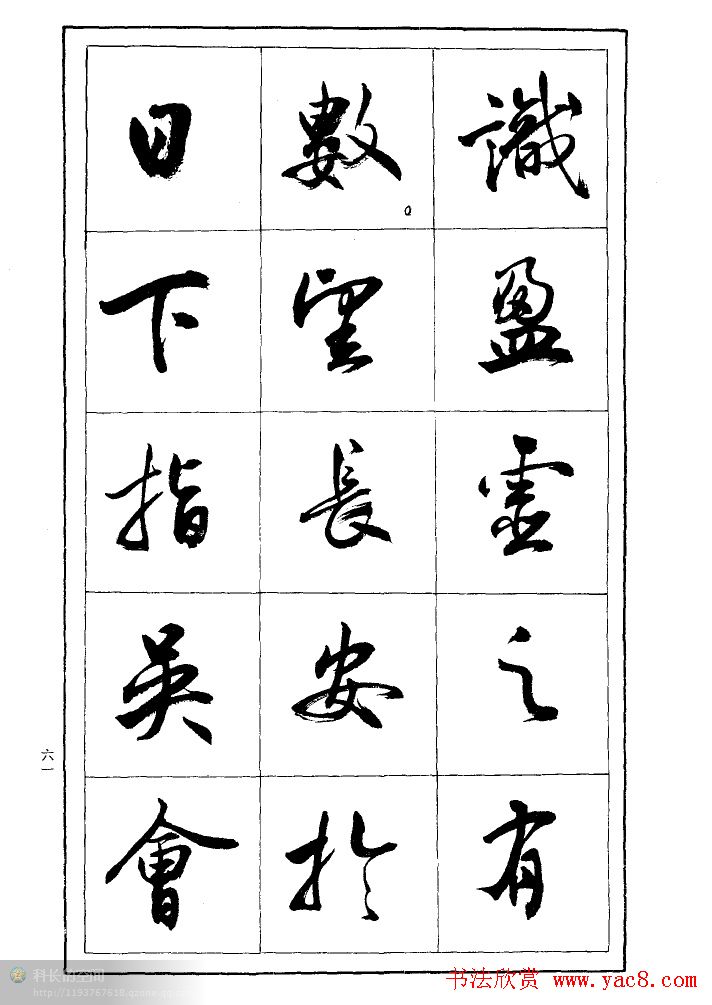 識盈虛之有
數。望長安於
日下指吳會
六一
科长的空间
http://1193767618.qzone.qq.com
书法欣赏 www.yac8.com